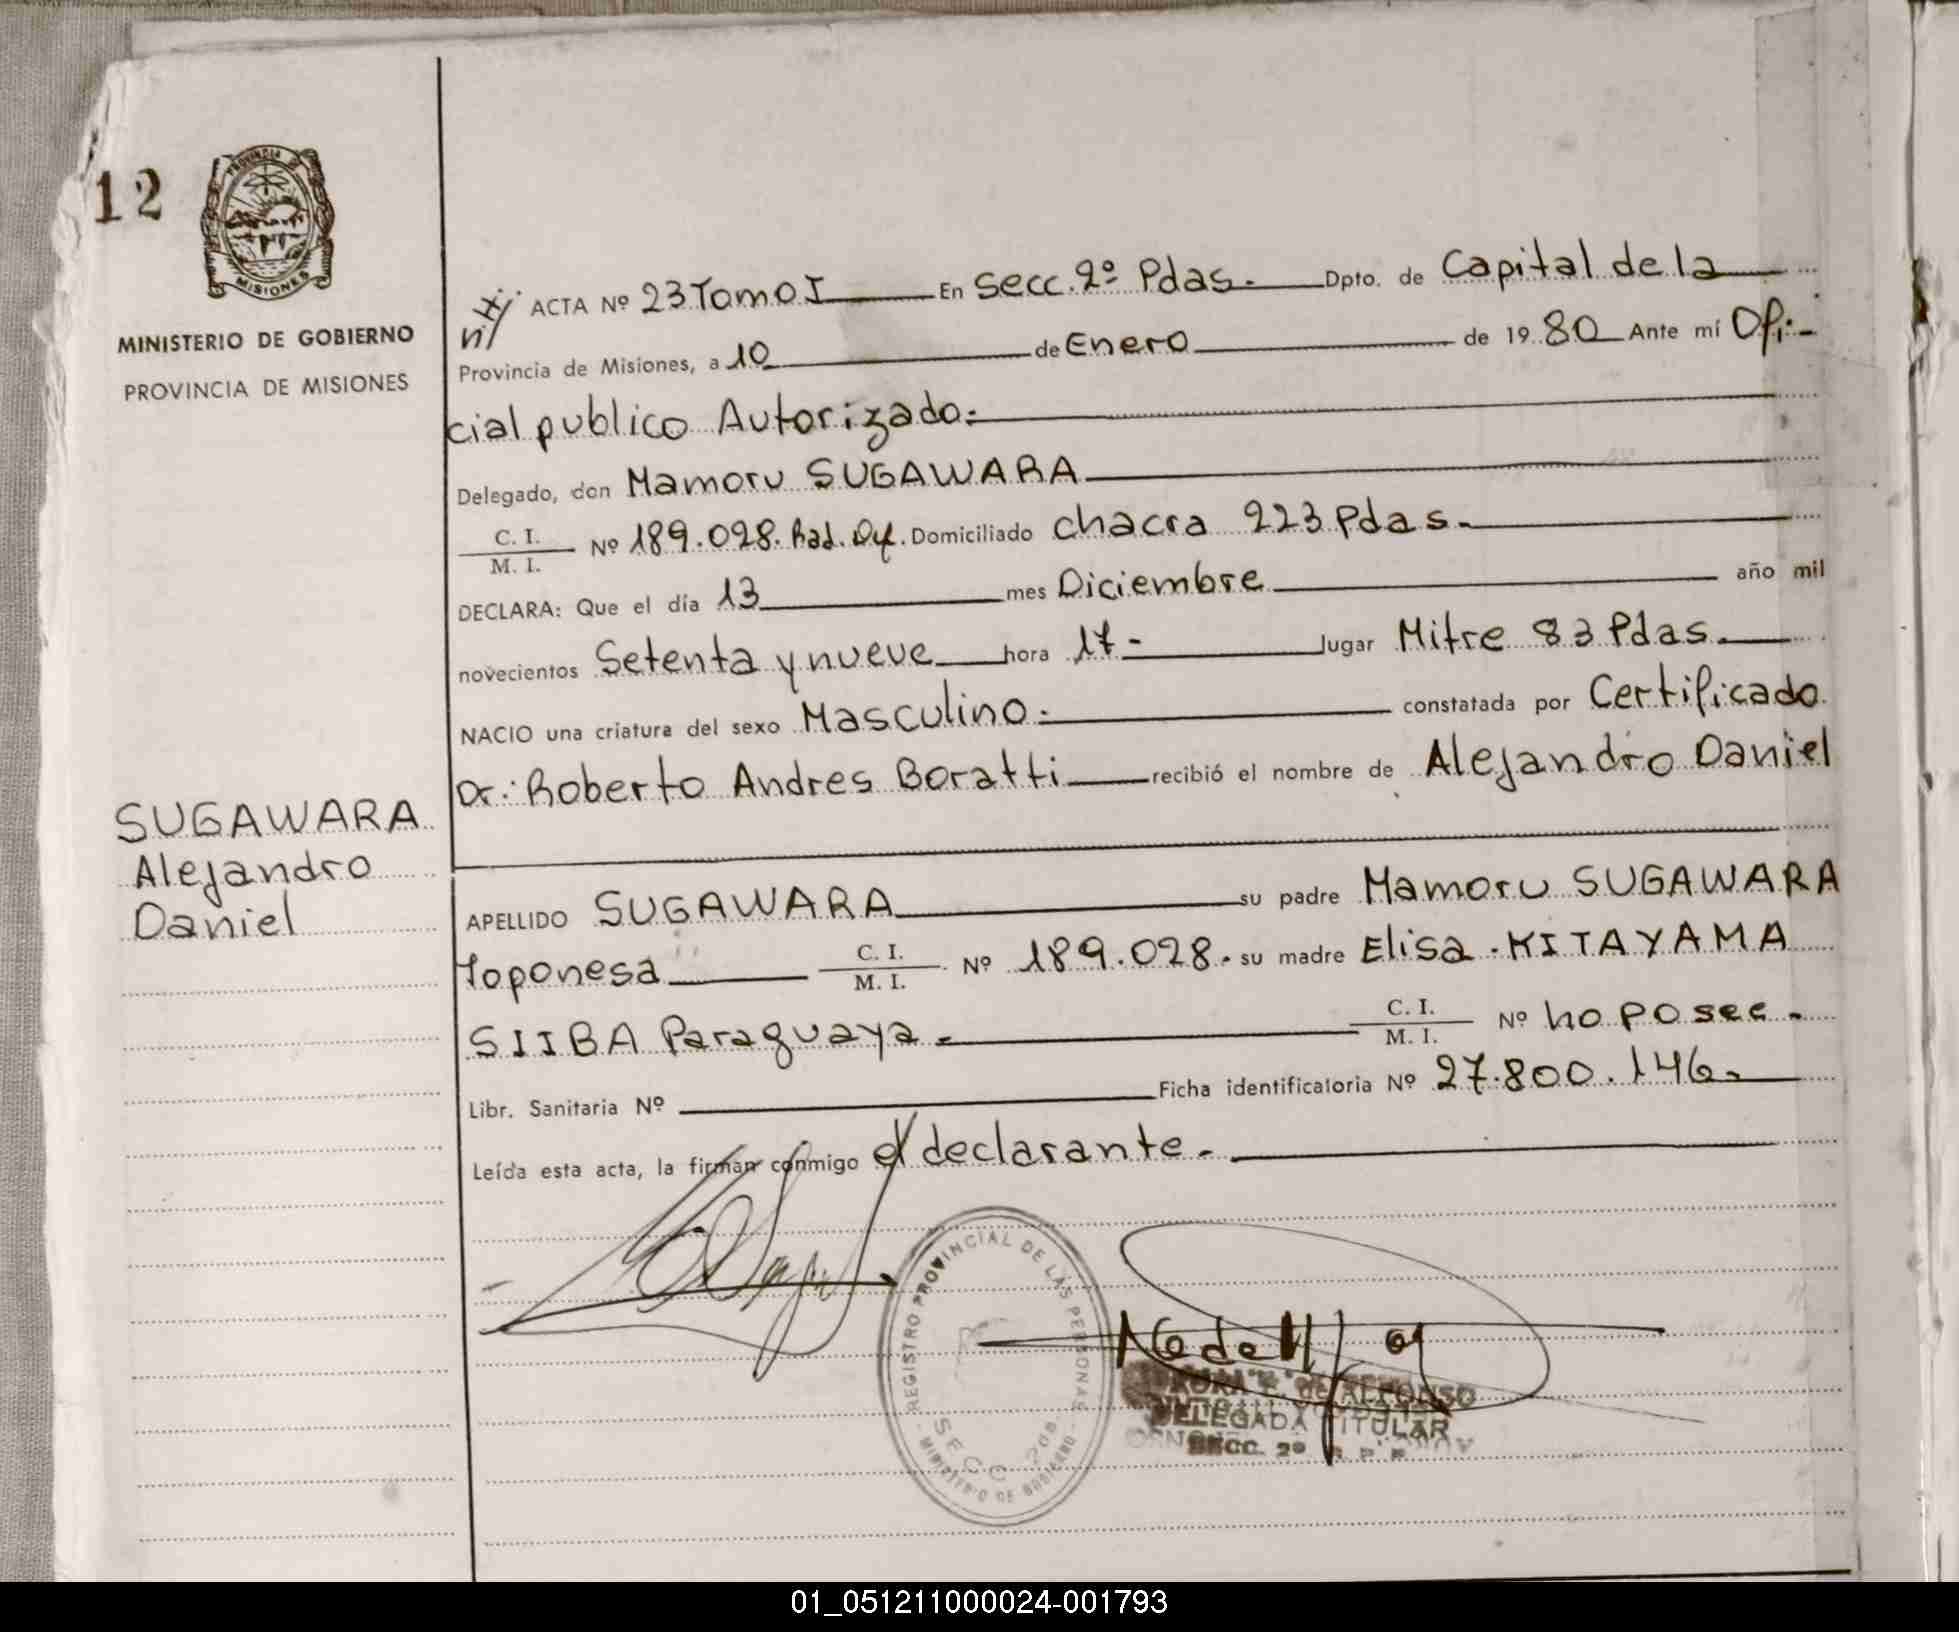 12
PROVINCIA DE
MISIONES
MINISTERIO DE GOBIERNO
PROVINCIA DE MISIONES
ACTA Nº 23 Tomo I En Secc. 2º Pdas. Dpto. de Capital de la
Provincia de Misiones, a 10 de Enero de 19 80 Ante mí Ofi-
cial publico Autorizado.
Delegado, don Mamoru SUGAWARA
C. I.
M. I. Nº 189.028. Rad. Def. Domiciliado Chacra 223 Pdas.
DECLARA: Que el día 13 mes Diciembre año mil
novecientos Setenta y nueve hora 17- lugar Mitre 83 Pdas.
NACIO una criatura del sexo Masculino. constatada por Certificado
Dr: Roberto Andres Boratti recibió el nombre de Alejandro Daniel
SUGAWARA
Alejandro
Daniel
APELLIDO SUGAWARA su padre Mamoru SUGAWARA
C. I.
M. I. Nº 189.028. su madre Elisa KITAYAMA
SIIBA Paraguaya C. I.
M. I. Nº no posee.
Libr. Sanitaria Nº Ficha identificatoria Nº 27.800.146.
Leída esta acta, la firman conmigo el declarante.
REGISTRO PROVINCIAL DE LAS PERSONAS
SECC
MINISTERIO DE GOBIERNO
de ALFONSO
DELEGADA TITULAR
SECC. 2º R. P. P.
01_051211000024-001793